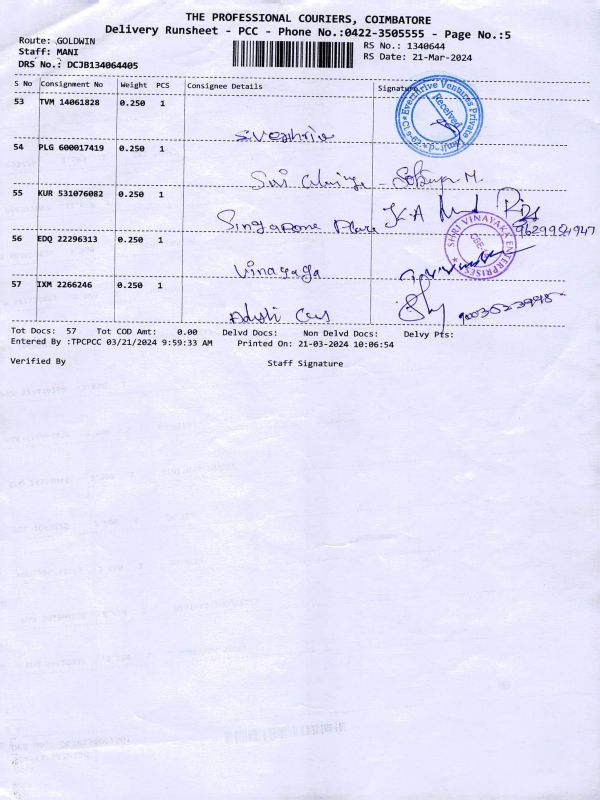 THE PROFESSIONAL COURIERS, COIMBATORE
Delivery Runsheet - PCC - Phone No.:0422-3505555 - Page No.:5
Route: GOLDWIN
Staff: MANI
DRS No.: DCJB134064405
RS No.: 1340644
RS Date: 21-Mar-2024
S No Consignment No Weight PCS Consignee Details Signature
53 TVM 14061828 0.250 1
EverThrive Ventures Private Limited
Received
54 PLG 600017419 0.250 1
Sri
55 KUR 531076082 0.250 1
Singapore Place K.A
56 EDQ 22296313 0.250 1
SHRI VINAYAKA ENTERPRISES
CBE
Vinayaga
57 IXM 2266246 0.250 1
Tot Docs: 57 Tot COD Amt: 0.00 Delvd Docs: Non Delvd Docs: Delvy Pts:
Entered By :TPCPCC 03/21/2024 9:59:33 AM Printed On: 21-03-2024 10:06:54
Verified By Staff Signature